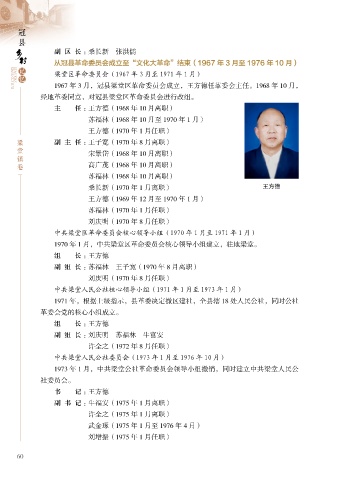 冠县
乡村
记忆
梁堂镇卷
副 区 长：乘长新 张洪韶
从冠县革命委员会成立至“文化大革命”结束（1967 年 3 月至 1976 年 10 月）
梁堂区革命委员会（1967 年 3 月至 1971 年 1 月）
1967 年 3 月，冠县梁堂区革命委员会成立，王方德任革委会主任。1968 年 10 月，
经地革委同意，对冠县梁堂区革命委员会进行改组。
主 任：王方德（1968 年 10 月离职）
苏福林（1968 年 10 月至 1970 年 1 月）
王方德（1970 年 1 月任职）
副 主 任：王子宽（1970 年 8 月离职）
宋景岱（1968 年 10 月离职）
高广茂（1968 年 10 月离职）
苏福林（1968 年 10 月离职）
乘长新（1970 年 1 月离职）
王方德（1969 年 12 月至 1970 年 1 月）
苏福林（1970 年 1 月任职）
刘庆明（1970 年 8 月任职）
王方德
中共梁堂区革命委员会核心领导小组（1970 年 1 月至 1971 年 1 月）
1970 年 1 月，中共梁堂区革命委员会核心领导小组建立，驻地梁堂。
组 长：王方德
副 组 长：苏福林 王子宽（1970 年 8 月离职）
刘庆明（1970 年 8 月任职）
中共梁堂人民公社核心领导小组（1971 年 1 月至 1973 年 1 月）
1971 年，根据上级指示，县革委决定撤区建社，全县辖 18 处人民公社，同时公社
革委会党的核心小组成立。
组 长：王方德
副 组 长：刘庆明 苏福林 牛富安
许金之（1972 年 8 月任职）
中共梁堂人民公社委员会（1973 年 1 月至 1976 年 10 月）
1973 年 1 月，中共梁堂公社革命委员会领导小组撤销，同时建立中共梁堂人民公
社委员会。
书 记：王方德
副 书 记：牛福安（1975 年 1 月离职）
许金之（1975 年 1 月离职）
武金琢（1975 年 1 月至 1976 年 4 月）
刘增振（1975 年 1 月任职）
60